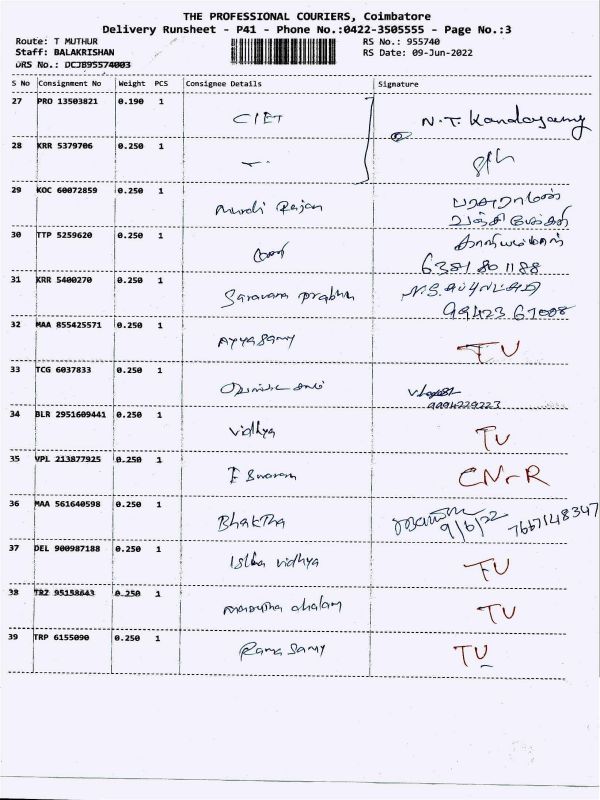 THE PROFESSIONAL COURIERS, Coimbatore
Delivery Runsheet - P41 - Phone No.:0422-3505555 - Page No.:3
Route: T MUTHUR RS No.: 955740
Staff: BALAKRISHAN RS Date: 09-Jun-2022
DRS No.: DCJB95574003
S No Consignment No Weight PCS Consignee Details Signature
27 PRO 13503821 0.190 1 CIET N.T. Kandasamy
28 KRR 5379706 0.250 1
29 KOC 60072859 0.250 1 Murali Rajan
30 TTP 5259620 0.250 1 6381801188
31 KRR 5400270 0.250 1 Saravana prabhu
99423 67008
32 MAA 855425571 0.250 1 Ayyasamy TU
33 TCG 6037833 0.250 1
9994229223
34 BLR 2951609441 0.250 1 vidhya TU
35 VPL 213877925 0.250 1 CN-R
36 MAA 561640598 0.250 1 Bhaktha 9/6/22 7667148347
37 DEL 900987188 0.250 1 vidhya TU
38 TRZ 95158643 0.250 1 TU
39 TRP 6155090 0.250 1 Rama samy TU